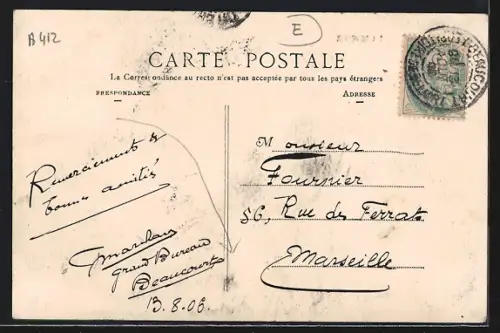 B 412
E
CARTE POSTALE
La Correspondance au recto n'est pas acceptée par tous les pays étrangers
RRESPONDANCE
ADRESSE
Remerciements &
bonnes amitiés
Grand Bureau
Beaucourt
13.8.06.
Monsieur
Fournier
56, Rue des Ferrats
Marseille